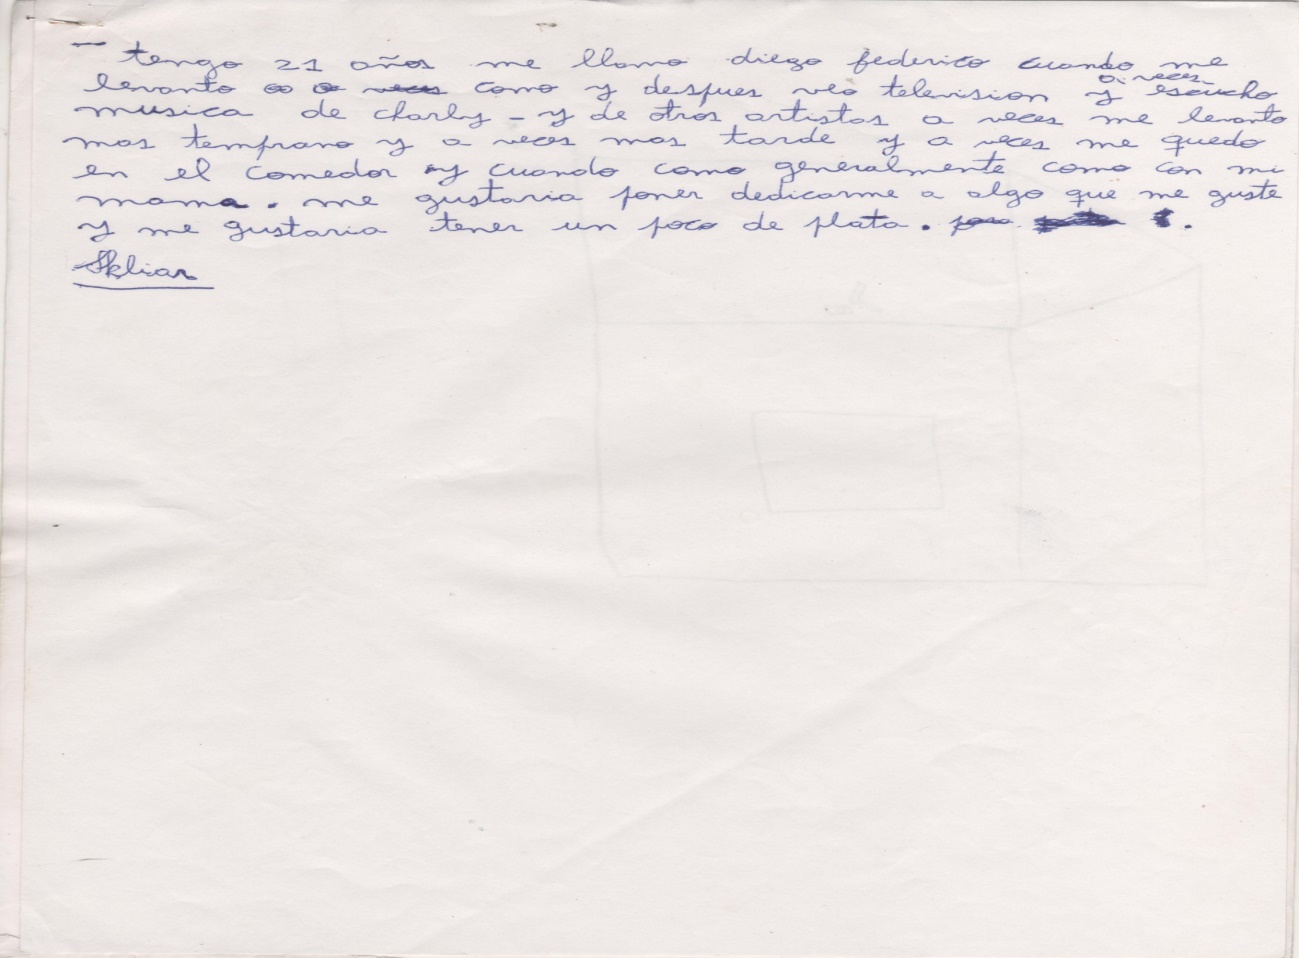 — tengo 21 años me llamo diego federico cuando me
levanto a veces como y despues veo television y a veces escucho
musica de charly - y de otros artistas a veces me levanto
mas temprano y a veces mas tarde y a veces me quedo
en el comedor y cuando como generalmente como con mi
mama. me gustaria poner dedicarme a algo que me guste
y me gustaria tener un poco de plata.
Skliar